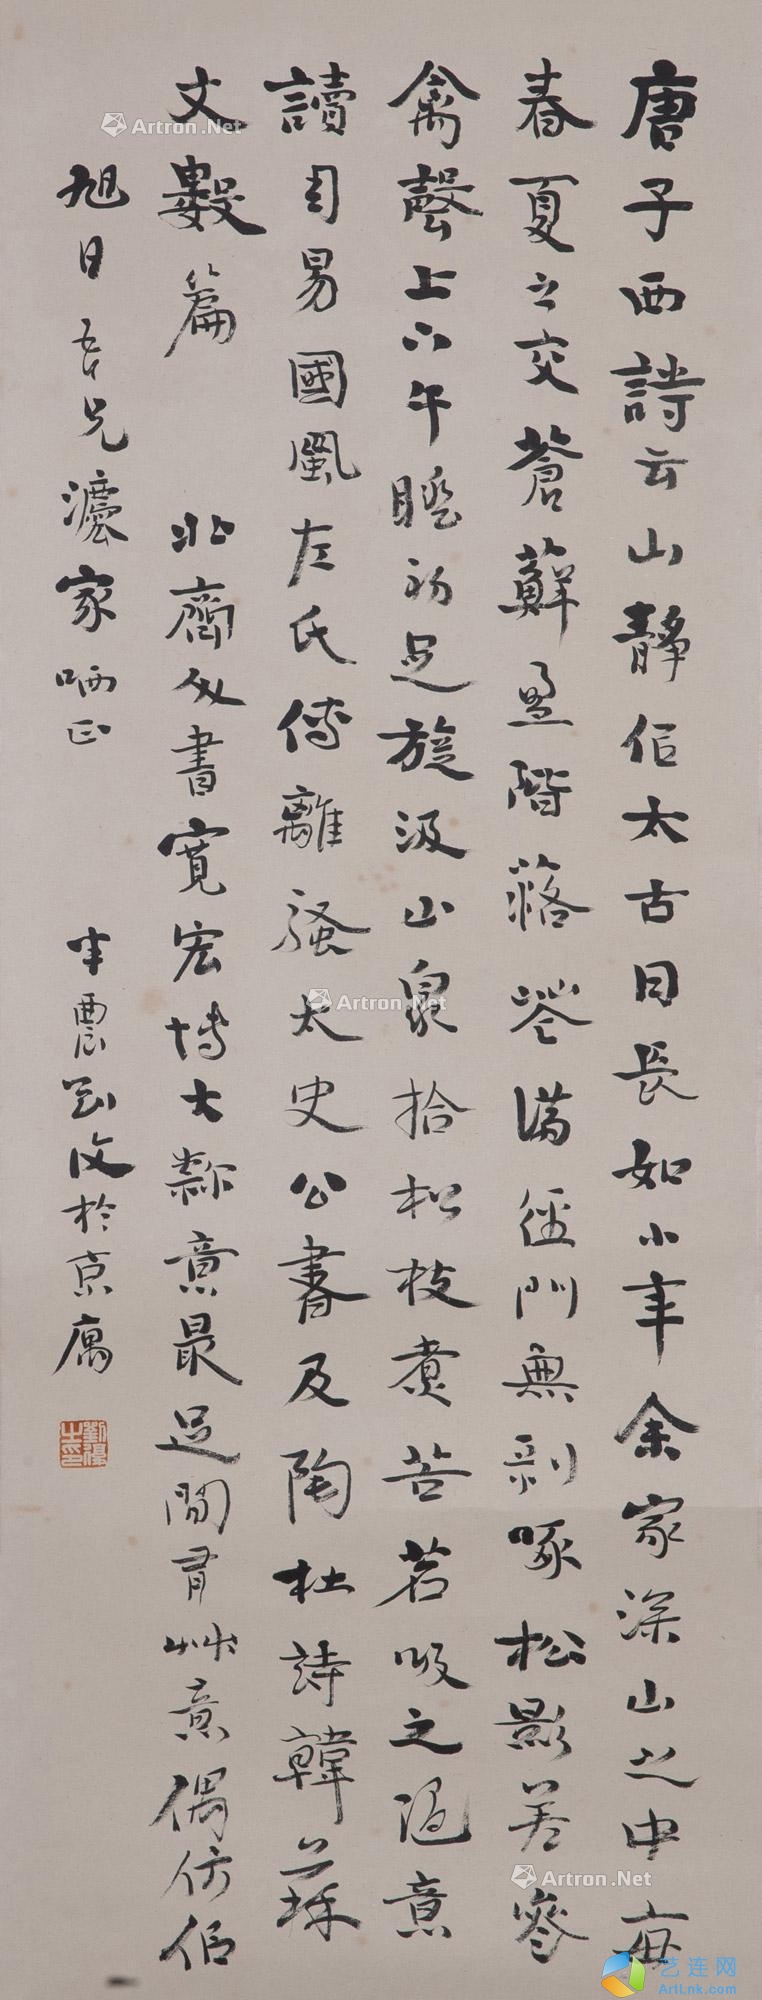 唐子西詩云山靜佀太古日長如小年余家深山之中每
春夏之交蒼蘚盈階落花滿徑門無剥啄松影差參
禽聲上下午睡初足旋汲山泉拾松枝煮苦茗吸之隨意
讀周易國風左氏傳離騷太史公書及陶杜詩韓蘇
文數篇 北齊人書寬宏博大隸意最足間有艸意偶仿佀
旭日吾兄灋家哂正 半農劉復於京寓
劉復之印
Artron.Net
Artron.Net
Artron.Net
艺连网
ArtLnk.Com